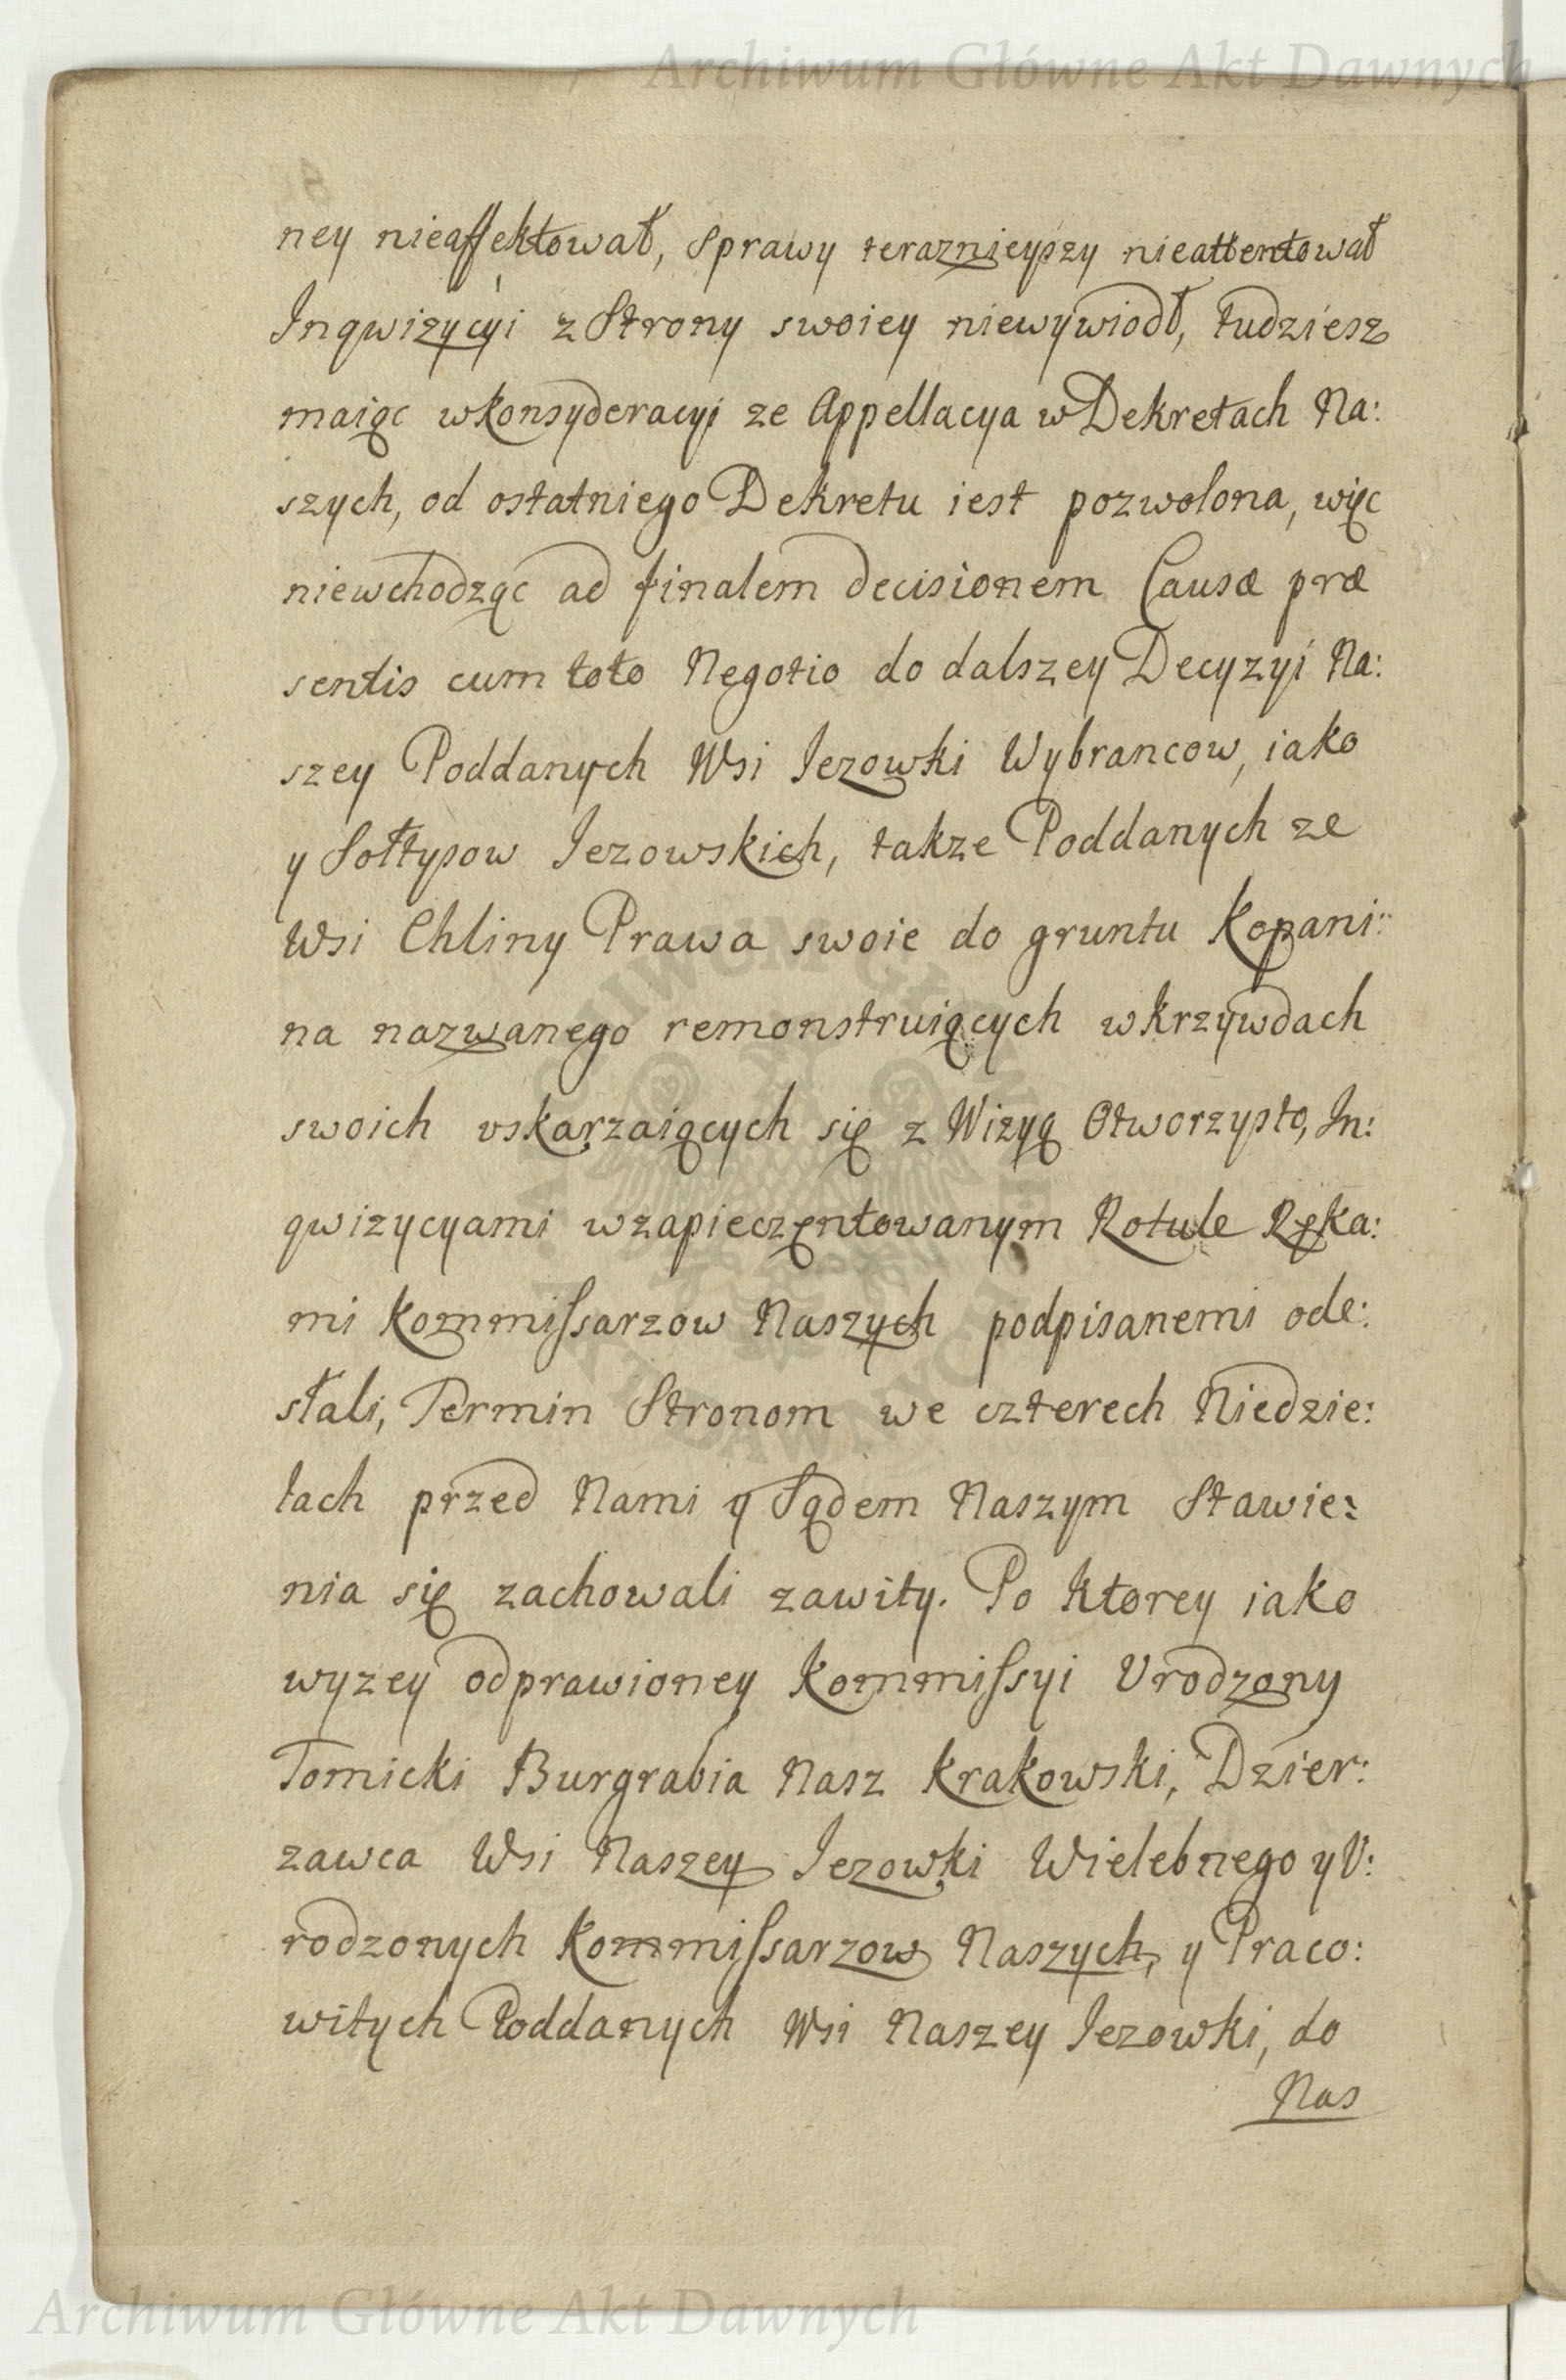 Archiwum Główne Akt Dawnych
ney nieaffektował, Sprawy teraznieyszy nieattentował
Inqwizycyi z Strony swoiey niewywiodł, tudziesz
maiąc wkonsyderacyi ze Appellacya w Dekretach Na:
szych, od ostatniego Dekretu iest pozwolona, więc
niewchodząc ad finalem decisionem Causæ præ
sentis cum toto Negotio do dalszey Decyzyi Na:
szey Poddanych Wsi Iezowki Wybrancow, iako
y Sołtysow Iezowskich, takze Poddanych ze
Wsi Chliny Prawa swoie do gruntu Kopani:
na nazwanego remonstruiących wkrzywdach
swoich uskarzaiących się z Wizyą Otworzysto, In:
qwizycyami wzapieczentowanym Rotule Ręka:
mi Kommissarzow Naszych podpisanemi ode:
słali, Termin Stronom we czterech Niedzie:
lach przed Nami y Sądem Naszym Stawie:
nia się zachowali zawity. Po ktorey iako
wyzey odprawioney Kommissyi Urodzony
Tomicki Burgrabia Nasz Krakowski, Dzier:
zawca Wsi Naszey Iezowki Wielebnego y U:
rodzonych Kommissarzow Naszych, y Praco:
witych Poddanych Wsi Naszey Iezowki, do
Nas
Archiwum Główne Akt Dawnych